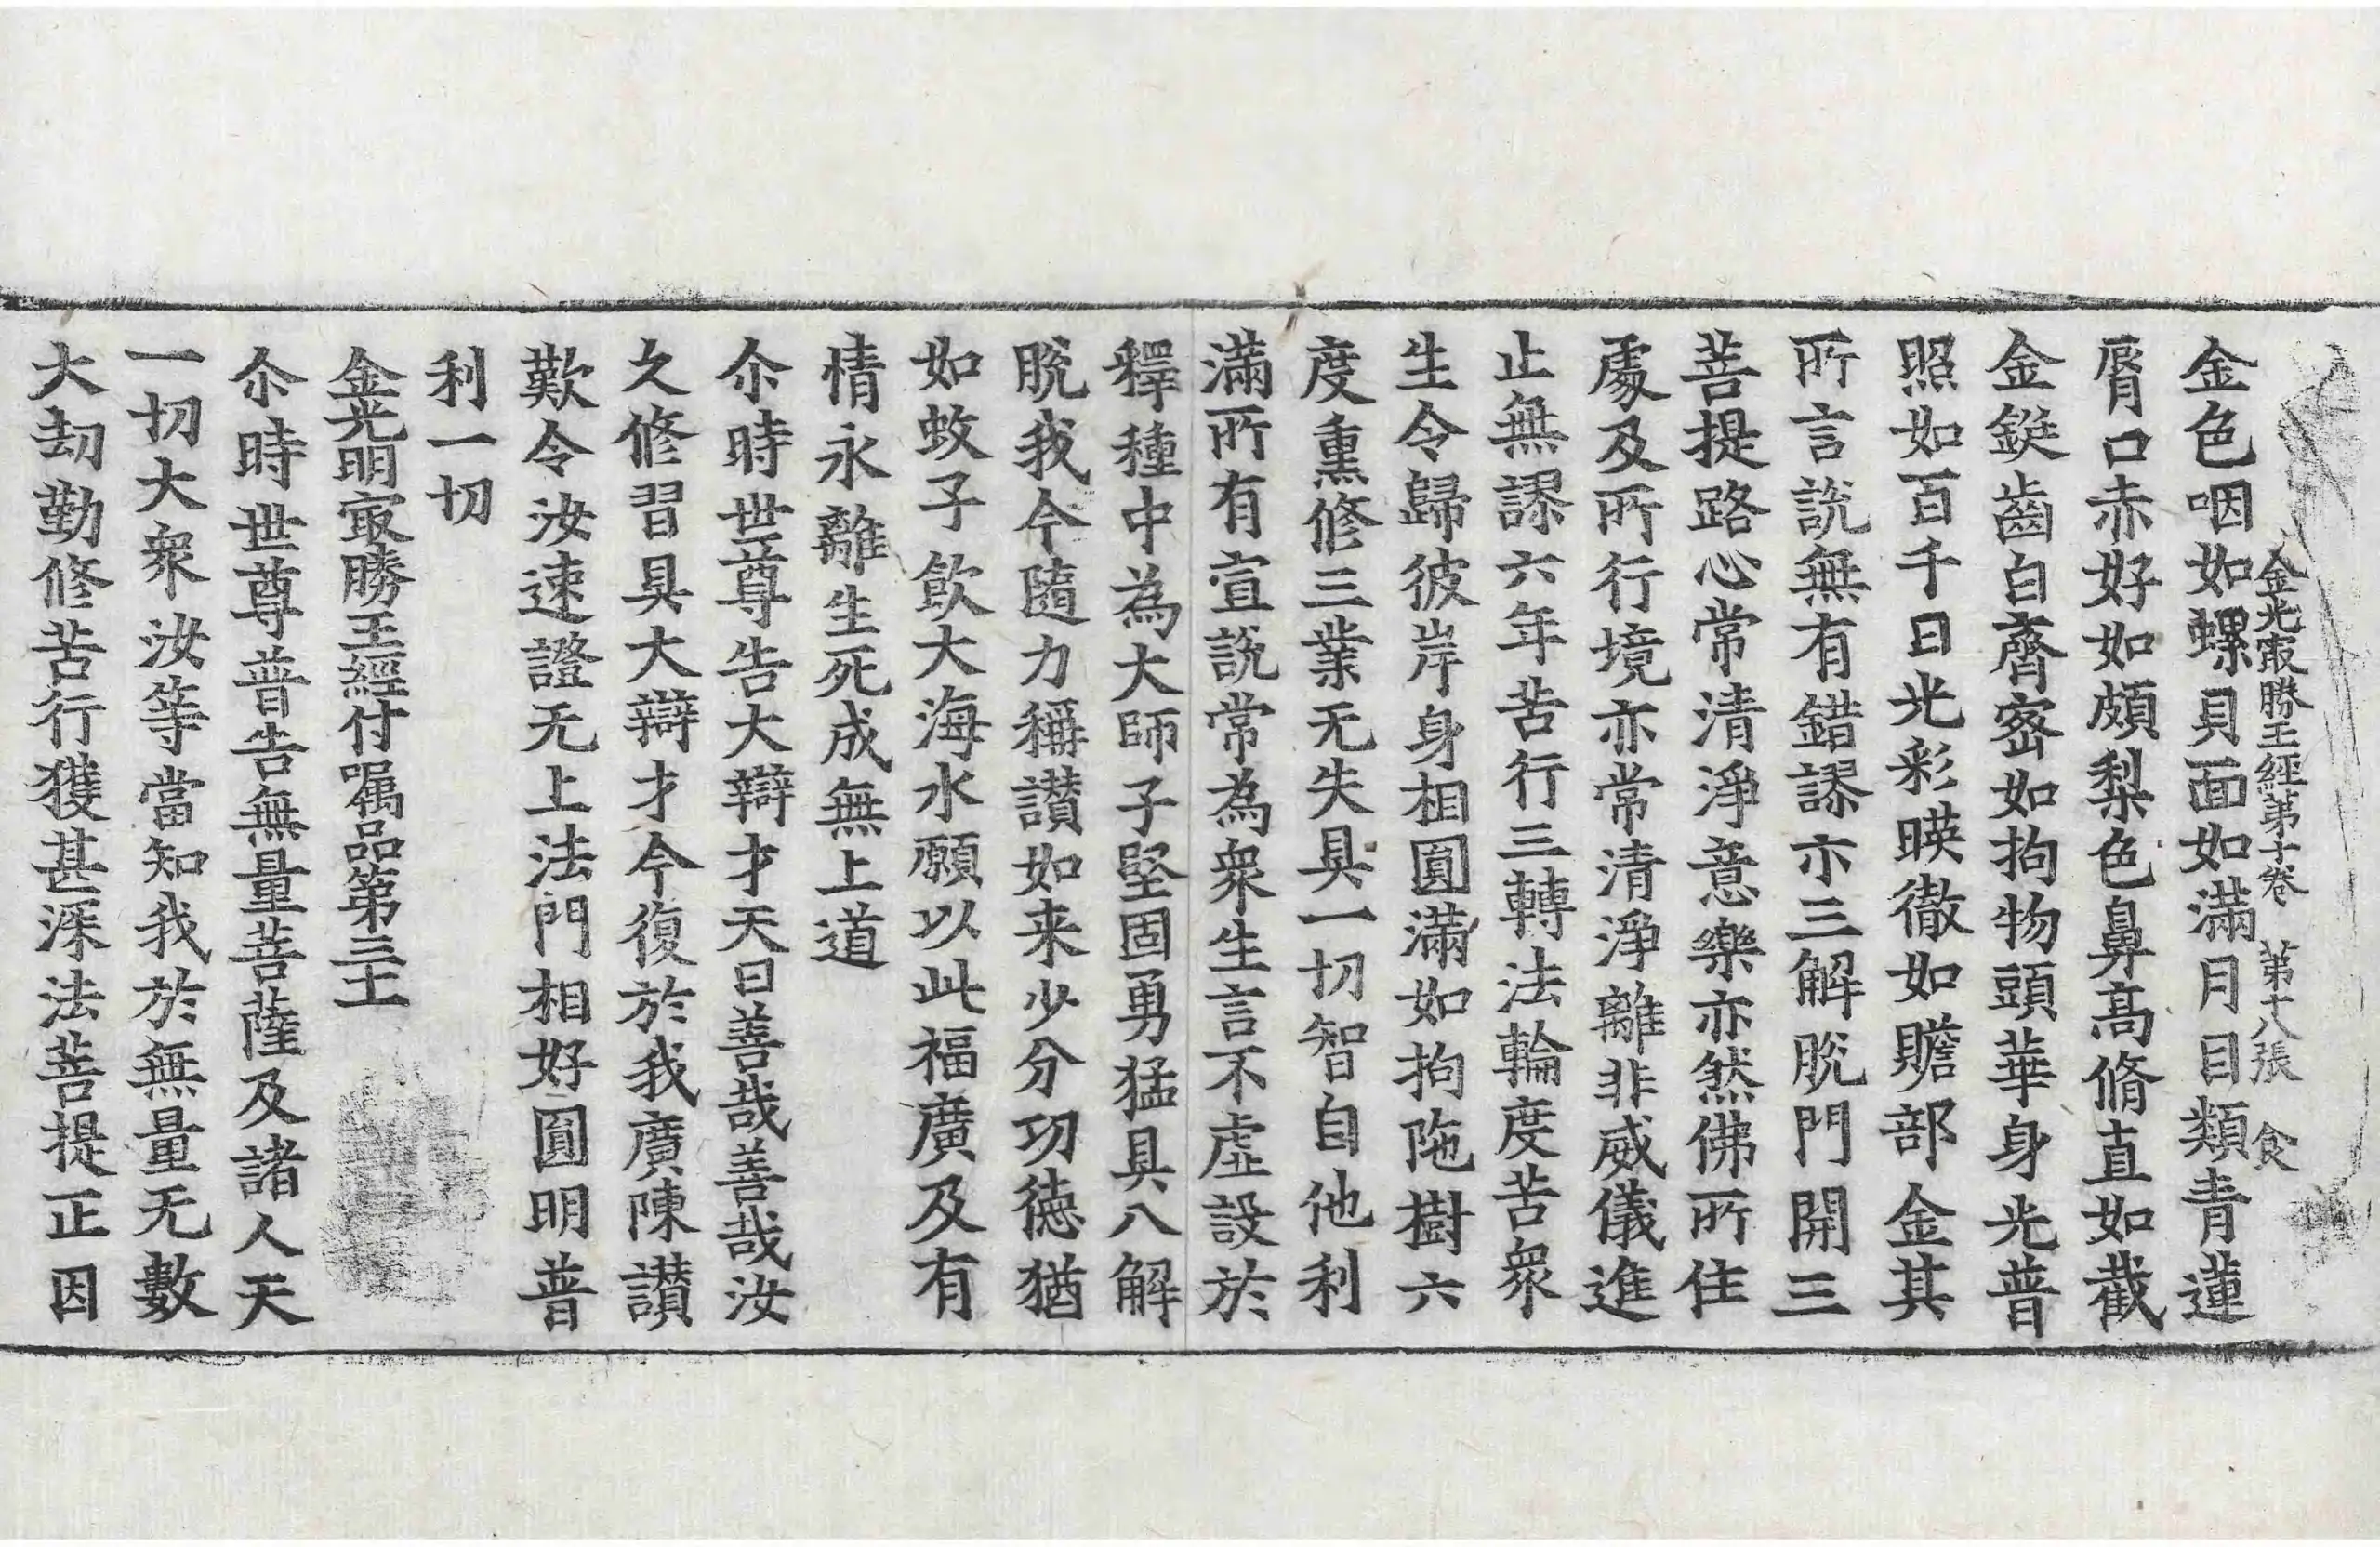 金光㝡勝王經第十卷　第十八張　食
金色咽如螺貝面如滿月目類青蓮
脣口赤好如頗梨色鼻高脩直如截
金鋌齒白齊密如拘物頭華身光普
照如百千日光彩暎徹如贍部金其
所言說無有錯謬亦三解脫門開三
菩提路心常清淨意樂亦然佛所住
處及所行境亦常清淨離非威儀進
止無謬六年苦行三轉法輪度苦衆
生令歸彼岸身相圓滿如拘陁樹六
度熏修三業无失具一切智自他利
滿所有宣說常為衆生言不虛設於
釋種中為大師子堅固勇猛具八解
脫我今隨力稱讃如来少分功德猶
如蚊子飲大海水願以此福廣及有
情永離生死成無上道
尒時世尊告大辯才天曰善哉善哉汝
久修習具大辯才今復於我廣陳讃
歎令汝速證无上法門相好圓明普
利一切
金光明㝡勝王經付囑品第三十一
尒時世尊普告無量菩薩及諸人天
一切大衆汝等當知我於無量无數
大劫勤修苦行獲甚深法菩提正因